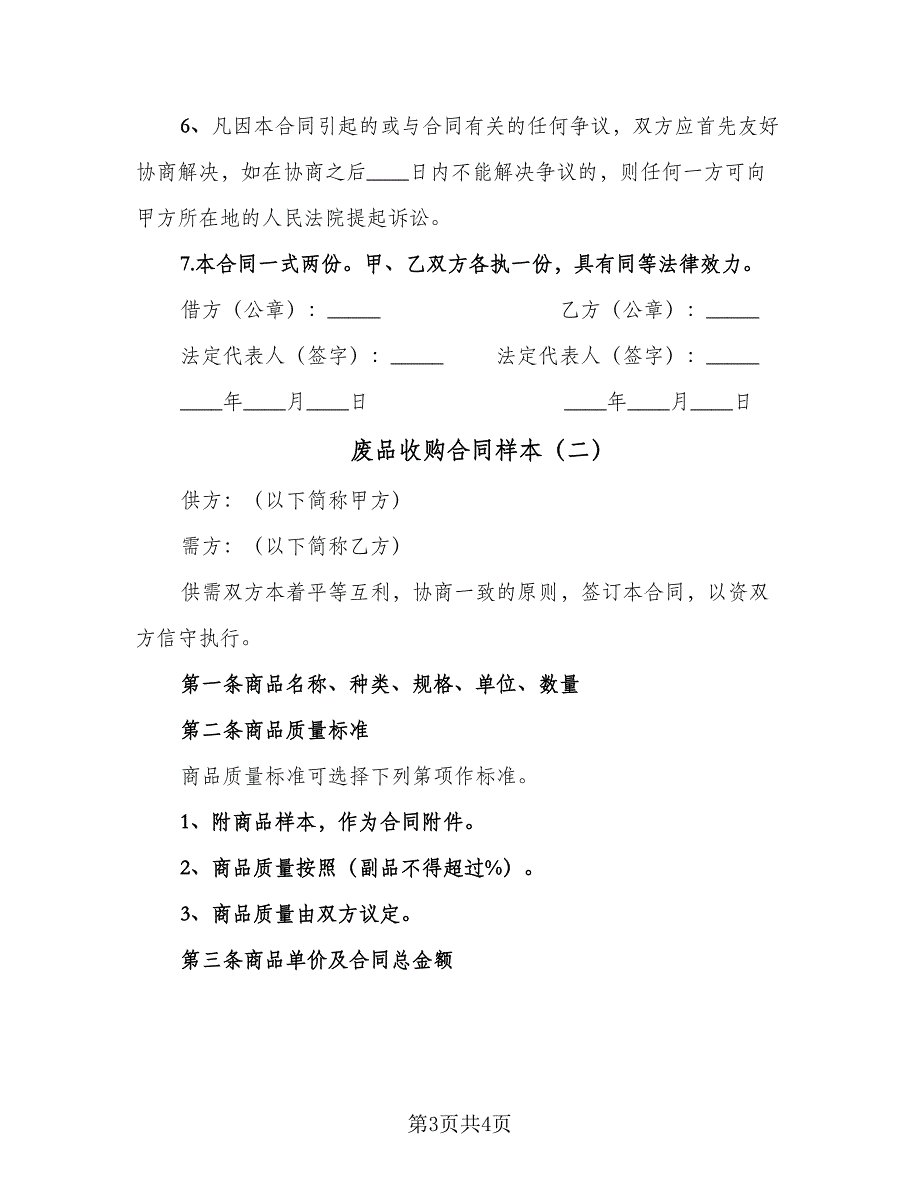 6、凡因本合同引起的或与合同有关的任何争议，双方应首先友好
协商解决，如在协商之后____日内不能解决争议的，则任何一方可向
甲方所在地的人民法院提起诉讼。
7.本合同一式两份。甲、乙双方各执一份，具有同等法律效力。
借方（公章）：_____ 乙方（公章）：_____
法定代表人（签字）：_____ 法定代表人（签字）：_____
____年____月____日 ____年____月____日
废品收购合同样本（二）
供方：（以下简称甲方）
需方：（以下简称乙方）
供需双方本着平等互利，协商一致的原则，签订本合同，以资双
方信守执行。
第一条商品名称、种类、规格、单位、数量
第二条商品质量标准
商品质量标准可选择下列第项作标准。
1、附商品样本，作为合同附件。
2、商品质量按照（副品不得超过%）。
3、商品质量由双方议定。
第三条商品单价及合同总金额
第3页共4页